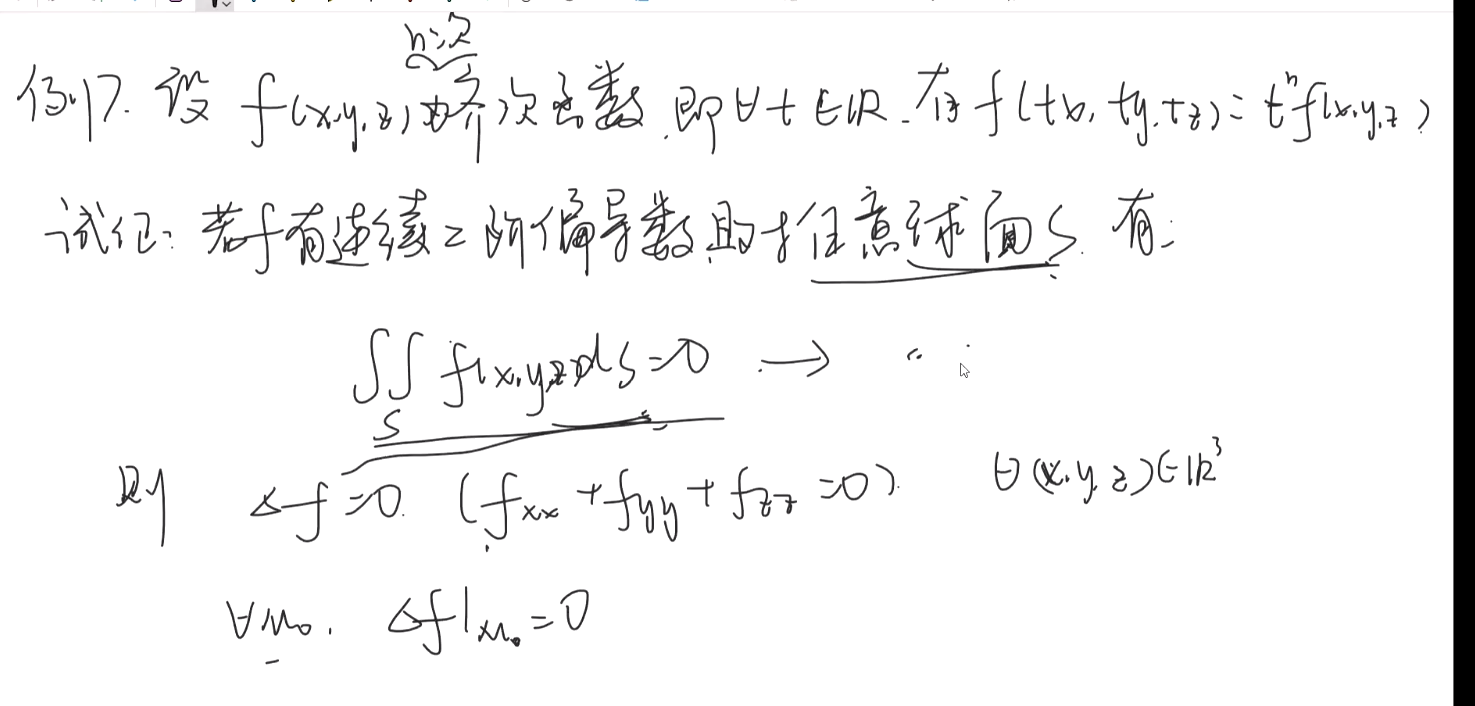 n次
例17. 设 f(x,y,z)为齐次函数,即∀t∈R.有f(tx,ty,tz)=tⁿf(x,y,z)
试证:若f有连续二阶偏导数且对任意球面S.有:
∬_S f(x,y,z)dS=0 →
则 Δf=0. (f_xx+f_yy+f_zz=0). ∀(x,y,z)∈R³
∀M₀. Δf|_M₀=0